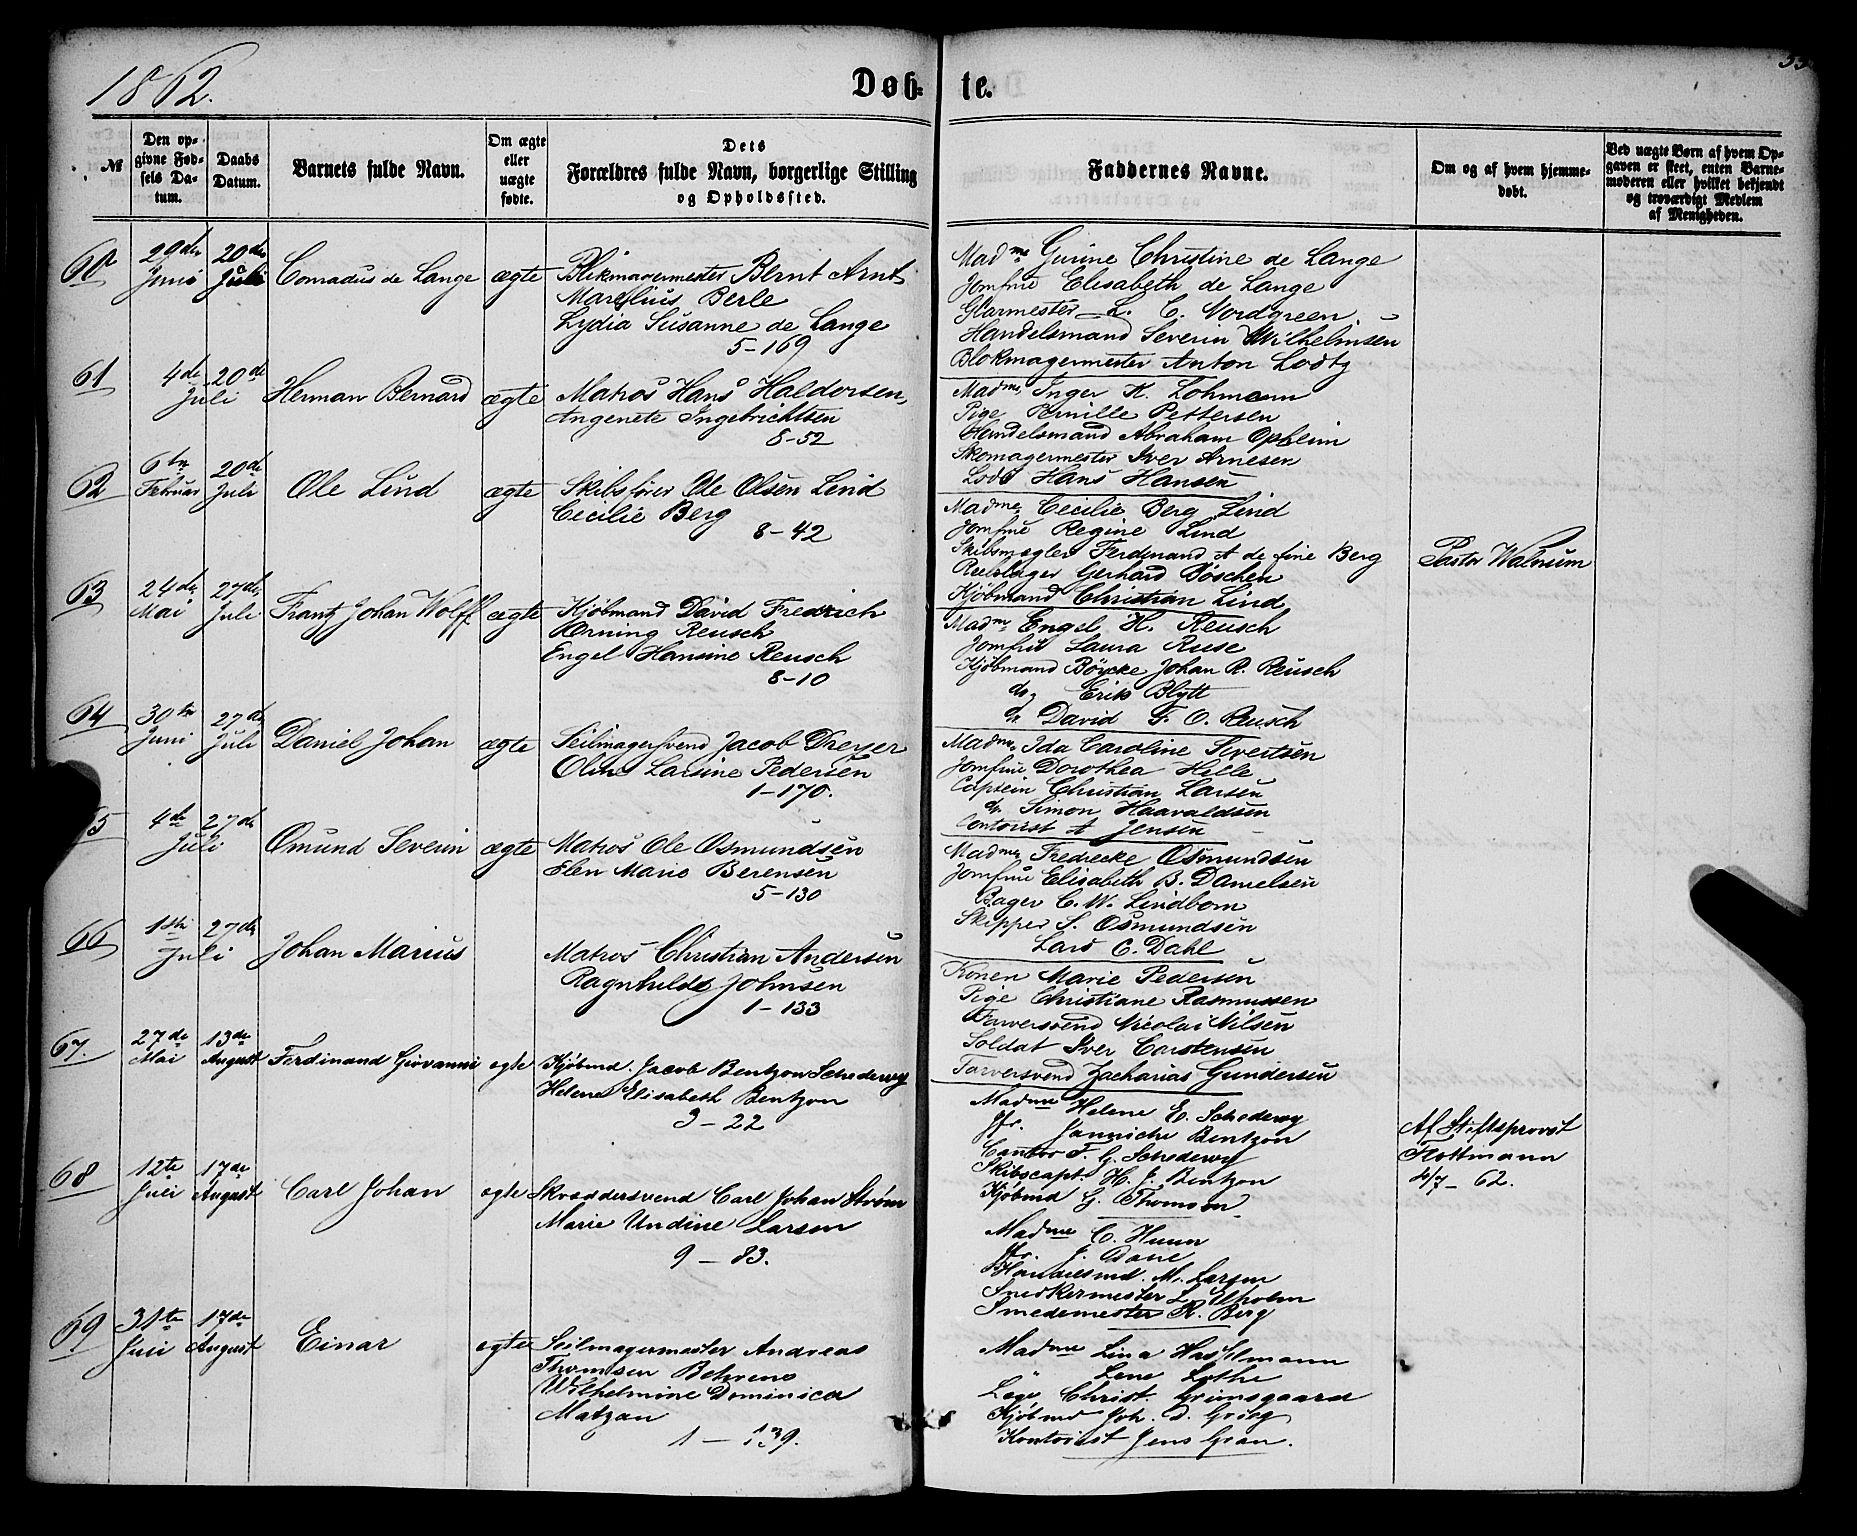 1862.
Døb- te.
№
Den op-
givne Fød-
sels Da-
tum.
Daabs
Datum.
Barnets fulde Navn.
Om ægte
eller
uægte
fødte.
Dets
Forældres fulde Navn, borgerlige Stilling
og Opholdssted.
Faddernes Navne.
Om og af hvem hjemme-
døbt.
Ved uægte Børn af hvem Op-
gaven er skeet, enten Barne-
moderen eller hvilket bekjendt
og troværdigt Medlem
af Menigheden.
60
29de
Juni
20de
Juli
Conradus de Lange
ægte
Blikmagermester Bernt Arnt
Marselius Berle
Lydia Susanne de Lange
5-169
Madme Gurine Christine de Lange
Jomfrue Elisabeth de Lange
Glarmester L. C. Nordgreen
Handelsmand Severin Wilhelmsen
Blokmagermester Anton Lodtz
61
4de 20de
Juli
Herman Bernard
ægte
Matros Hans Haldorsen,
Angenete Ingebrichtsen
8-52
Madme Inger K. Lohmann
Pige Pernille Pettersen
Handelsmand Abraham Opheim
Skomagermester Iver Arnesen
Lods Hans Hansen
62
6te
Februar
20de
Juli
Ole Lind
ægte
Skibsfører Ole Olsen Lind
Cecilie Berg
8-42
Madme Cecilie Berg Lind
Jomfrue Regine Lind
Skibsmægler Ferdinand A de fine Berg
Reebslager Gerhard Döschen
Kjøbmand Christian Lind
Pastor Walnum
63
24de
Mai
27de
Juli
Frantz Johan Wolff
ægte
Kjøbmand David Fredrich
Ørning Reusch
Engel Hansine Reusch
8-10
Madme Engel H. Reusch
Jomfrue Laura Ruse
Kjøbmand Böycke Johan R. Reusch
do Erik Blytt
do David F. O. Reusch
64
30te
Juni
27de
Juli
Daniel Johan
ægte
Seilmagersvend Jacob Dreyer
Oline Larsine Pedersen
1-170.
Madme Ida Caroline Sivertsen
Jomfrue Dorothea Hille
Captein Christian Larsen
do. Simon Haavaldsen
Contorist A Jensen
65
4de 27de
Juli
Omund Severin
ægte
Matros Ole Osmundsen
Elen Marie Berensen
5-130
Madme Fredrecke Osmundsen
Jomfrue Elisabeth B. Danielsen
Bager C. W. Lindbom
Skipper S. Osmundsen
Lars C. Dahl
66
1ste 27de
Juli
Johan Marius
Matros Christian Andersen
Ragnhilde Johnsen
1-133
Konen Marie Pedersen
Pige Christiane Rasmussen
Farversvend Nicolai Nilsen
Soldat Iver Carstensen
Farversvend Zacharias Gundersen
67.
27de
Mai
13de
August
Ferdinand Giovanni
egte
Kjøbmd. Jacob Bentzon Schederwy
Helene Elisabeth Bentzon
3-22
Madme Helene E. Schederwy
Jfr. Jannicke Bentzon
Cantor F. G. Schederwy
Skibscapt. H. J. Bentzon
Kjøbmd G. Thomson
Af Stiftsprovst
Kottmann
4/7-62.
68
12te
Juli
17de
August
Carl Johan
egte
Skræddersvend Carl Johan Strøm
Marie Undine Larsen
9-83.
Madme C. Huun
Jfr. J. Daae
Handelsmd. M. Larsen
Snedkermester L. Elholm
Smedemester R. Berg
69
31te
Juli
17de
August
Einar
egte
Seilmagermester Andreas
Thomsen Behrens
Wilhelmine Dominica
Matzan
1-139.
Madme Lina Hasselmann
" Lene Lothe
Læge Christ. Grimsgaard
Kjøbmd Joh. D. Grieg
Kontorist Jens Gran.